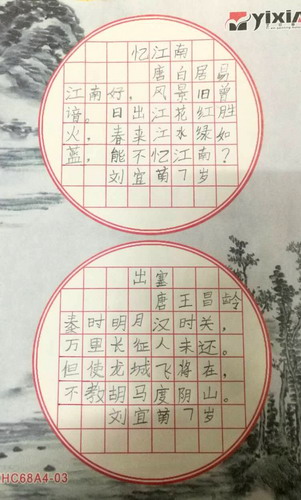 YIXIA
忆江南
唐白居易
江南好，风景旧曾
谙。日出江花红胜
火，春来江水绿如
蓝，能不忆江南？
刘宜萌7岁
出塞
唐王昌龄
秦时明月汉时关，
万里长征人未还。
但使龙城飞将在，
不教胡马度阴山。
刘宜萌7岁
HC68A4-03